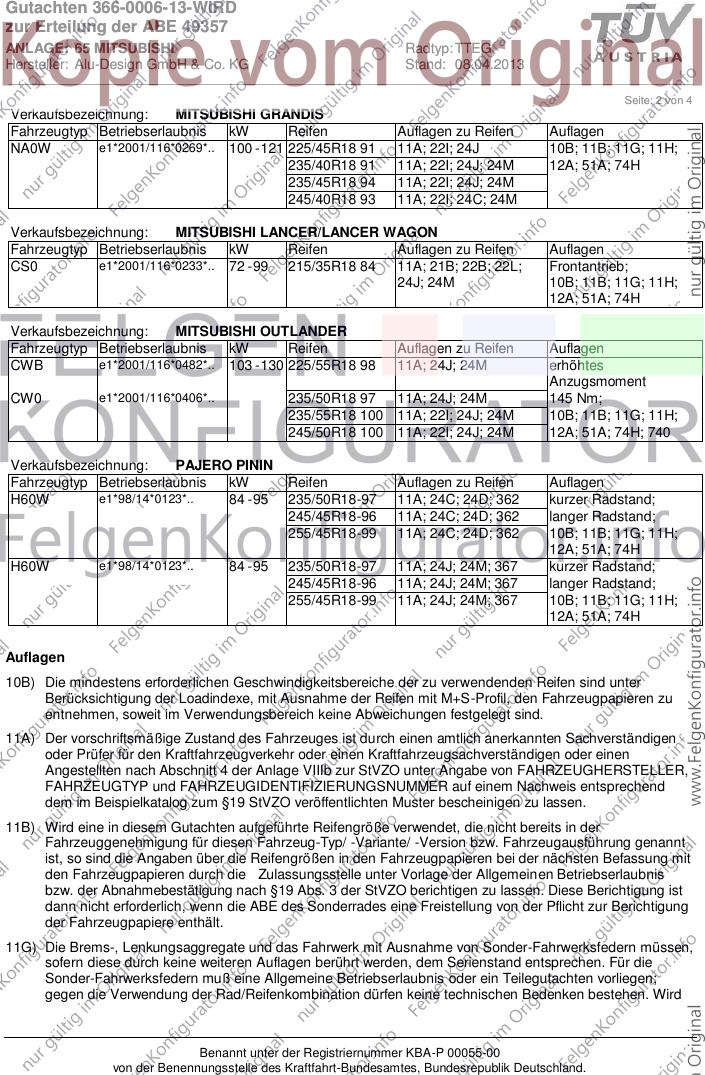 Gutachten 366-0006-13-WIRD
zur Erteilung der ABE 49357
ANLAGE: 65 MITSUBISHI
Hersteller: Alu-Design GmbH & Co. KG
Radtyp: TTEG
Stand: 08.04.2013
TÜV
AUSTRIA
Kopie vom Original
Seite: 2 von 4
Verkaufsbezeichnung: MITSUBISHI GRANDIS
Fahrzeugtyp Betriebserlaubnis kW Reifen Auflagen zu Reifen Auflagen
NA0W e1*2001/116*0269*.. 100 -121 225/45R18 91 11A; 22I; 24J 10B; 11B; 11G; 11H;
235/40R18 91 11A; 22I; 24J; 24M 12A; 51A; 74H
235/45R18 94 11A; 22I; 24J; 24M
245/40R18 93 11A; 22I; 24C; 24M
Verkaufsbezeichnung: MITSUBISHI LANCER/LANCER WAGON
Fahrzeugtyp Betriebserlaubnis kW Reifen Auflagen zu Reifen Auflagen
CS0 e1*2001/116*0233*.. 72 -99 215/35R18 84 11A; 21B; 22B; 22L; Frontantrieb;
24J; 24M 10B; 11B; 11G; 11H;
12A; 51A; 74H
Verkaufsbezeichnung: MITSUBISHI OUTLANDER
Fahrzeugtyp Betriebserlaubnis kW Reifen Auflagen zu Reifen Auflagen
CWB e1*2001/116*0482*.. 103 -130 225/55R18 98 11A; 24J; 24M erhöhtes
Anzugsmoment
CW0 e1*2001/116*0406*.. 235/50R18 97 11A; 24J; 24M 145 Nm;
235/55R18 100 11A; 22I; 24J; 24M 10B; 11B; 11G; 11H;
245/50R18 100 11A; 22I; 24J; 24M 12A; 51A; 74H; 740
FELGEN
KONFIGURATOR
Verkaufsbezeichnung: PAJERO PININ
Fahrzeugtyp Betriebserlaubnis kW Reifen Auflagen zu Reifen Auflagen
H60W e1*98/14*0123*.. 84 -95 235/50R18-97 11A; 24C; 24D; 362 kurzer Radstand;
245/45R18-96 11A; 24C; 24D; 362 langer Radstand;
255/45R18-99 11A; 24C; 24D; 362 10B; 11B; 11G; 11H;
12A; 51A; 74H
FelgenKonfigurator.info
H60W e1*98/14*0123*.. 84 -95 235/50R18-97 11A; 24J; 24M; 367 kurzer Radstand;
245/45R18-96 11A; 24J; 24M; 367 langer Radstand;
255/45R18-99 11A; 24J; 24M; 367 10B; 11B; 11G; 11H;
12A; 51A; 74H
Auflagen
10B) Die mindestens erforderlichen Geschwindigkeitsbereiche der zu verwendenden Reifen sind unter
Berücksichtigung der Loadindexe, mit Ausnahme der Reifen mit M+S-Profil, den Fahrzeugpapieren zu
entnehmen, soweit im Verwendungsbereich keine Abweichungen festgelegt sind.
11A) Der vorschriftsmäßige Zustand des Fahrzeuges ist durch einen amtlich anerkannten Sachverständigen
oder Prüfer für den Kraftfahrzeugverkehr oder einen Kraftfahrzeugsachverständigen oder einen
Angestellten nach Abschnitt 4 der Anlage VIIIb zur StVZO unter Angabe von FAHRZEUGHERSTELLER,
FAHRZEUGTYP und FAHRZEUGIDENTIFIZIERUNGSNUMMER auf einem Nachweis entsprechend
dem im Beispielkatalog zum §19 StVZO veröffentlichten Muster bescheinigen zu lassen.
11B) Wird eine in diesem Gutachten aufgeführte Reifengröße verwendet, die nicht bereits in der
Fahrzeuggenehmigung für diesen Fahrzeug-Typ/ -Variante/ -Version bzw. Fahrzeugausführung genannt
ist, so sind die Angaben über die Reifengrößen in den Fahrzeugpapieren bei der nächsten Befassung mit
den Fahrzeugpapieren durch die Zulassungsstelle unter Vorlage der Allgemeinen Betriebserlaubnis
bzw. der Abnahmebestätigung nach §19 Abs. 3 der StVZO berichtigen zu lassen. Diese Berichtigung ist
dann nicht erforderlich, wenn die ABE des Sonderrades eine Freistellung von der Pflicht zur Berichtigung
der Fahrzeugpapiere enthält.
11G) Die Brems-, Lenkungsaggregate und das Fahrwerk mit Ausnahme von Sonder-Fahrwerksfedern müssen,
sofern diese durch keine weiteren Auflagen berührt werden, dem Serienstand entsprechen. Für die
Sonder-Fahrwerksfedern muß eine Allgemeine Betriebserlaubnis oder ein Teilegutachten vorliegen;
gegen die Verwendung der Rad/Reifenkombination dürfen keine technischen Bedenken bestehen. Wird
Benannt unter der Registriernummer KBA-P 00055-00
von der Benennungsstelle des Kraftfahrt-Bundesamtes, Bundesrepublik Deutschland.
nur gültig im Original
www.FelgenKonfigurator.info